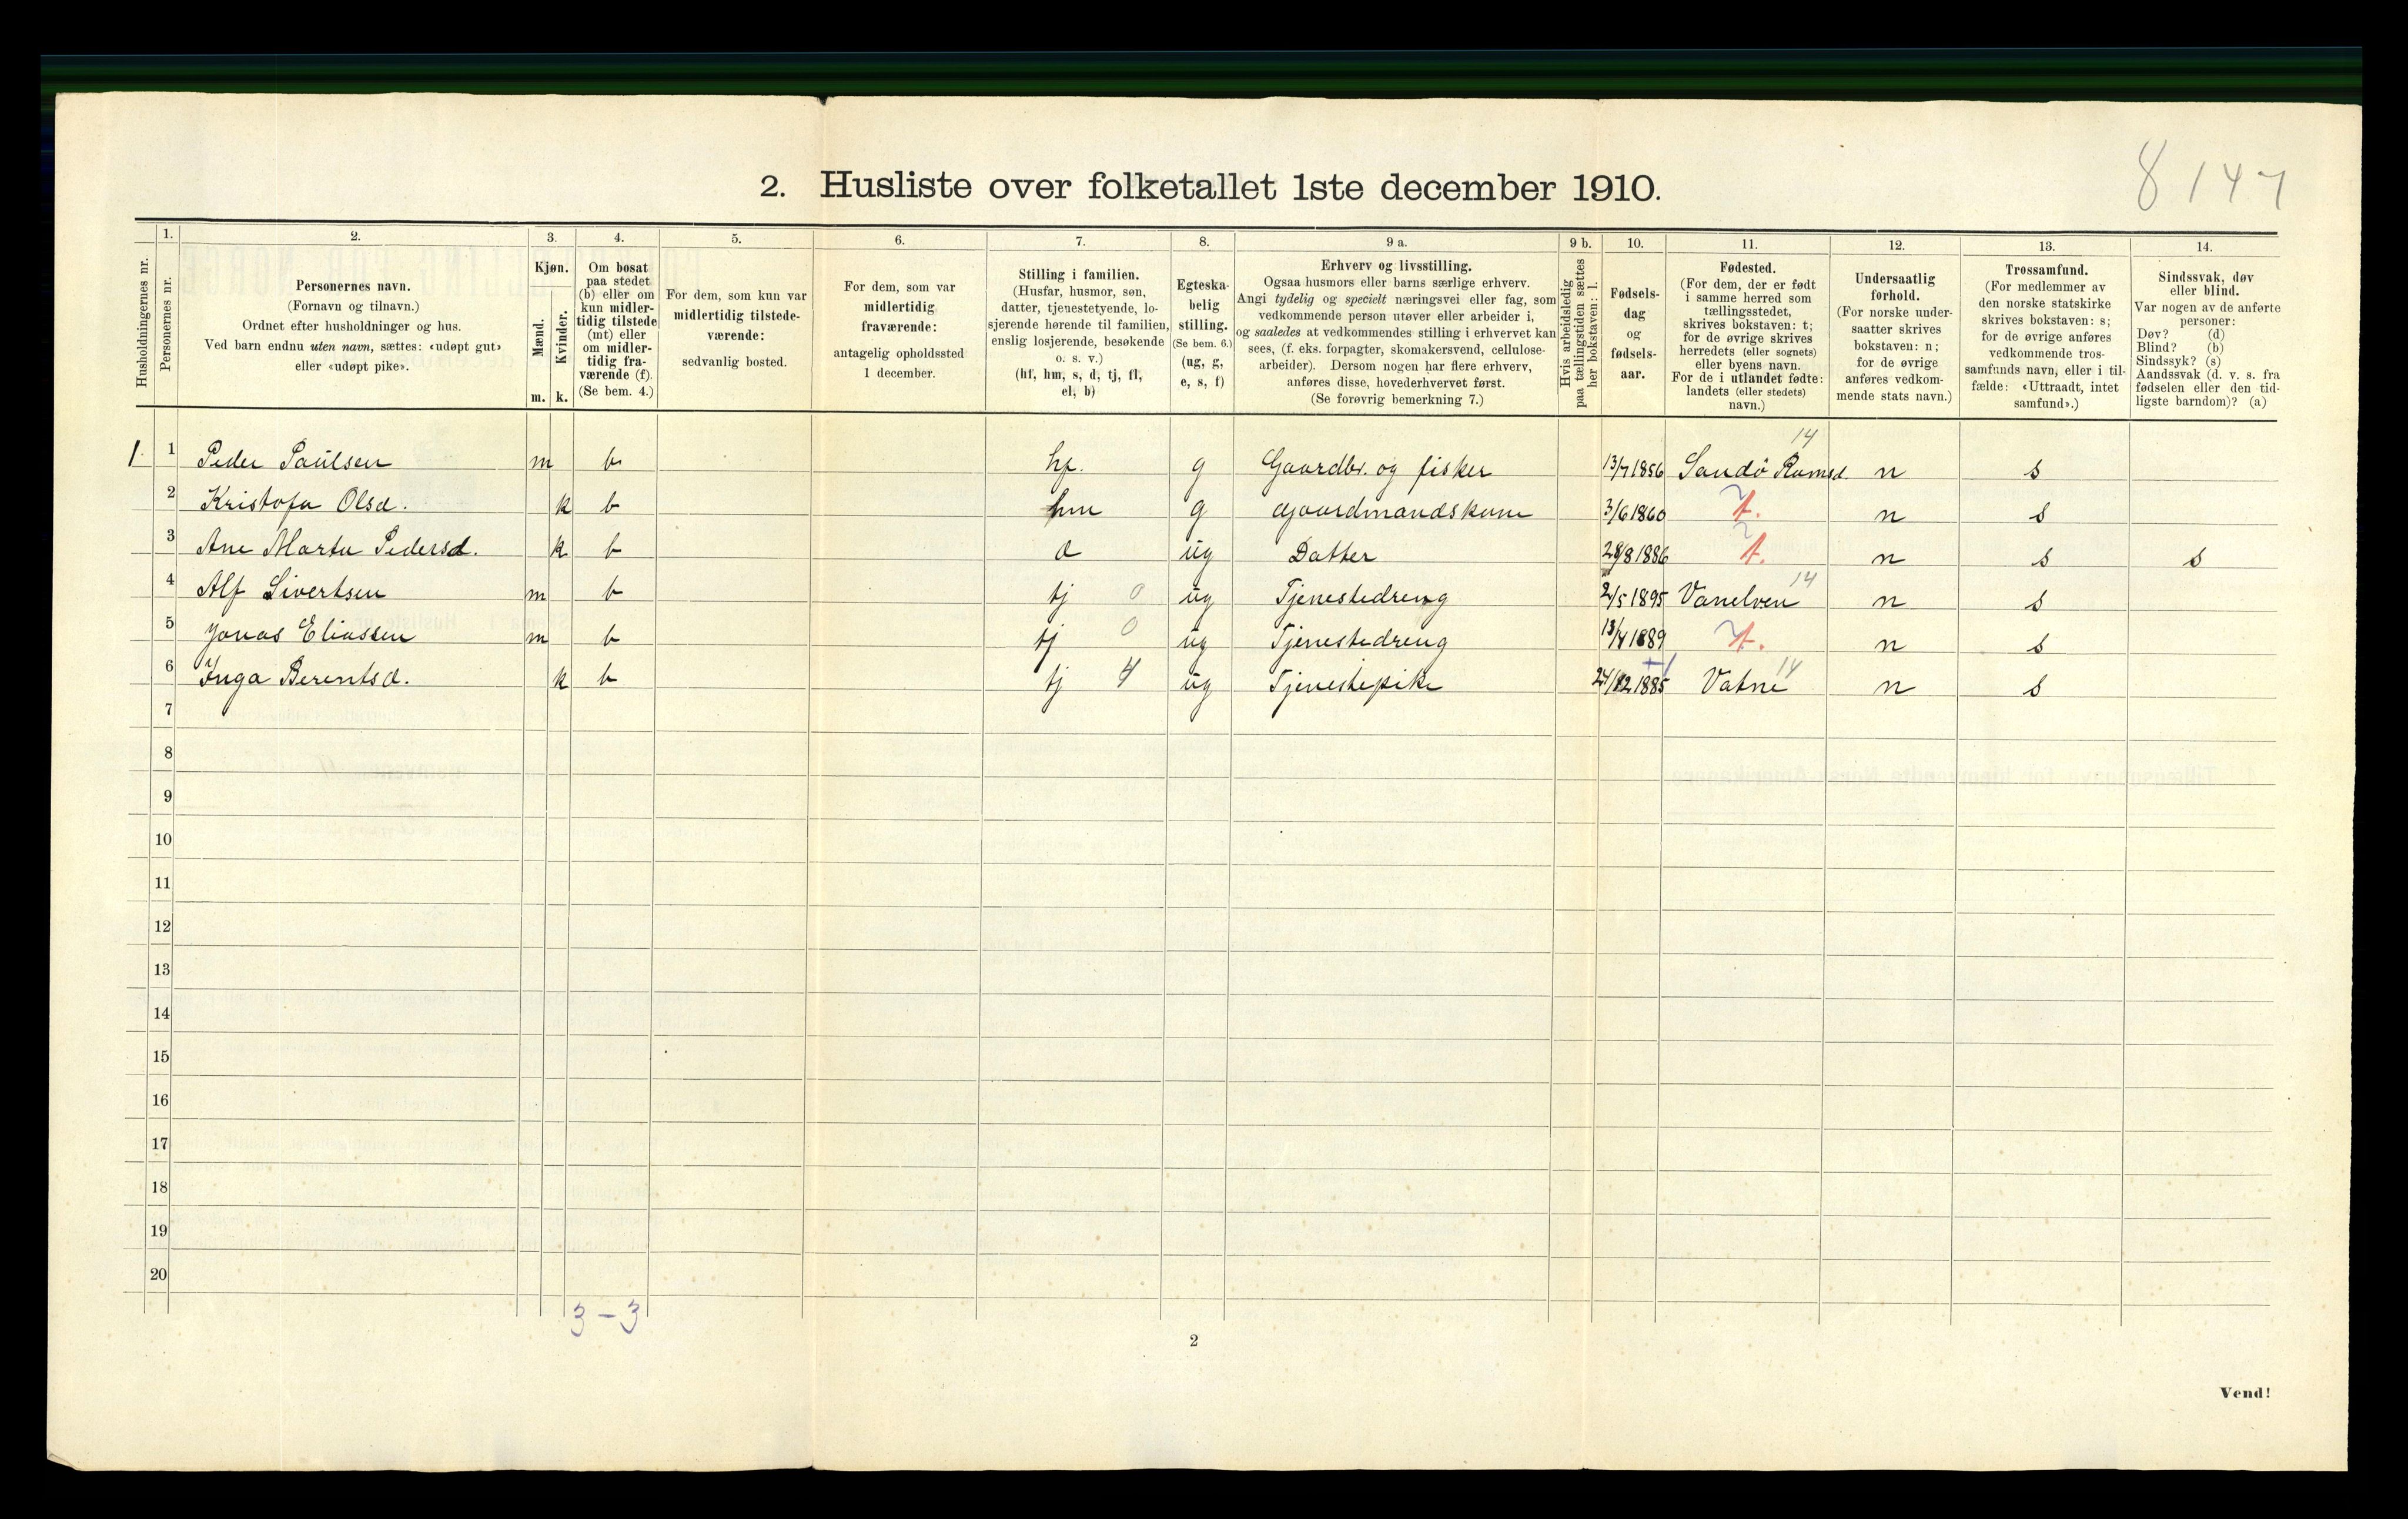 8 147
2. Husliste over folketallet 1ste december 1910.
Husholdningernes nr.
1. Personernes nr.
2.
Personernes navn.
(Fornavn og tilnavn.)
Ordnet efter husholdninger og hus.
Ved barn endnu uten navn, sættes: «udøpt gut»
eller «udøpt pike».
3.
Kjøn.
Mænd. Kvinder.
m. k.
4.
Om bosat
paa stedet
(b) eller om
kun midler-
tidig tilstede
(mt) eller
om midler-
tidig fra-
værende (f).
(Se bem. 4.)
5.
For dem, som kun var
midlertidig tilstede-
værende:
sedvanlig bosted.
6.
For dem, som var
midlertidig
fraværende:
antagelig opholdssted
1 december.
7.
Stilling i familien.
(Husfar, husmor, søn,
datter, tjenestetyende, lo-
sjerende hørende til familien,
enslig losjerende, besøkende
o. s. v.)
(hf, hm, s, d, tj, fl,
el, b)
8.
Egteska-
belig
stilling.
(Se bem. 6.)
(ug, g,
e, s, f)
9 a.
Erhverv og livsstilling.
Ogsaa husmors eller barns særlige erhverv.
Angi tydelig og specielt næringsvei eller fag, som
vedkommende person utøver eller arbeider i,
og saaledes at vedkommendes stilling i erhvervet kan
sees, (f. eks. forpagter, skomakersvend, cellulose-
arbeider). Dersom nogen har flere erhverv,
anføres disse, hovederhvervet først.
(Se forøvrig bemerkning 7.)
9 b.
Hvis arbeidsledig
paa tællingstiden sættes
her bokstaven: l.
10.
Fødsels-
dag
og
fødsels-
aar.
11.
Fødested.
(For dem, der er født
i samme herred som
tællingsstedet,
skrives bokstaven: t;
for de øvrige skrives
herredets (eller sognets)
eller byens navn.
For de i utlandet fødte:
landets (eller stedets)
navn.)
12.
Undersaatlig
forhold.
(For norske under-
saatter skrives
bokstaven: n;
for de øvrige
anføres vedkom-
mende stats navn.)
13.
Trossamfund.
(For medlemmer av
den norske statskirke
skrives bokstaven: s;
for de øvrige anføres
vedkommende tros-
samfunds navn, eller i til-
fælde: «Uttraadt, intet
samfund».)
14.
Sindssvak, døv
eller blind.
Var nogen av de anførte
personer:
Døv? (d)
Blind? (b)
Sindssyk? (s)
Aandssvak (d. v. s. fra
fødselen eller den tid-
ligste barndom)? (a)
1. 1 Peder Paulsen m b hf. g Gaardbr. og fisker 13/7 1856 Sandö Romsd. 14 n s
2 Kristofa Olsd. k b hm g Gaardmandskone 3/6 1860 t. n s
3 Ane Marta Pedersd. k b d ug Datter 28/8 1886 t. n s s
4 Alf Sivertsen m b tj 0 ug Tjenestedreng 2/5 1895 Vanelven 14 n s
5 Jonas Eliassen m b tj 0 ug Tjenestedreng 13/4 1889 t. n s
6 Inga Berentsd. k b tj 4 ug Tjenestepike 24/12 1885 Vatne 14 n s
7
8
9
10
11
12
13
14
15
16
17
18
19
20
3 – 3
2
Vend!